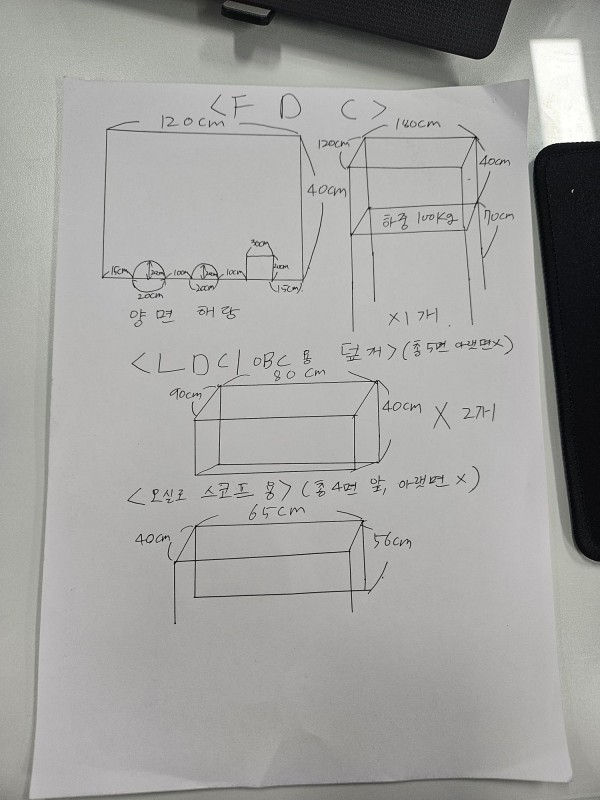 <F D C>
120cm
180cm
120cm
40cm
40cm
하중 100kg
70cm
30cm
15cm
10cm
10cm
20cm
20cm
15cm
양면 해당
X1개
<LDC/OBC용 덮개> (총5면 아랫면X)
80cm
90cm
40cm
X 2개
<오실로 스코프 용> (총4면 앞, 아랫면 X)
65cm
40cm
56cm